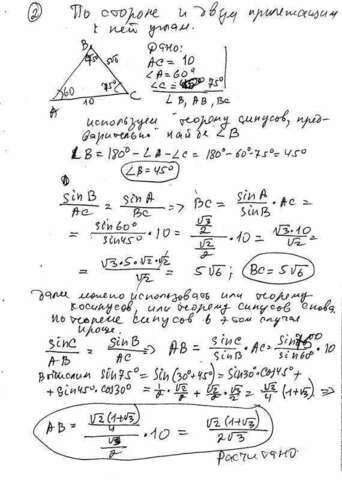 ② По стороне и двум прилежащим
к ней углам.
B
45°
5√6
60
75°
A
10
C
Дано:
AC = 10
∠A = 60°
∠C = 75°
∠B, AB, BC
используем теорему синусов, пред-
варительно найдя ∠B
∠B = 180° - ∠A - ∠C = 180° - 60° - 75° = 45°
∠B = 45°
sin B / AC = sin A / BC => BC = sin A / sin B · AC =
= sin 60° / sin 45° · 10 = (√3/2) / (√2/2) · 10 = √3·10 / √2 =
= √3·5·√2·√2 / √2 = 5√6 ; BC = 5√6
Далее можно использовать или теорему
косинусов, или теорему синусов снова
По теореме синусов в этом случае
проще.
sin C / AB = sin B / AC => AB = sin C / sin B · AC = sin 75° / sin 60° · 10
Вычислим sin 75° = sin (30° + 45°) = sin 30° · cos 45° +
+ sin 45° · cos 30° = 1/2 · √2/2 + √2/2 · √3/2 = √2/4 (1+√3) =>
AB = (√2(1+√3)/4) / (√3/2) · 10 = √2(1+√3) / 2√3